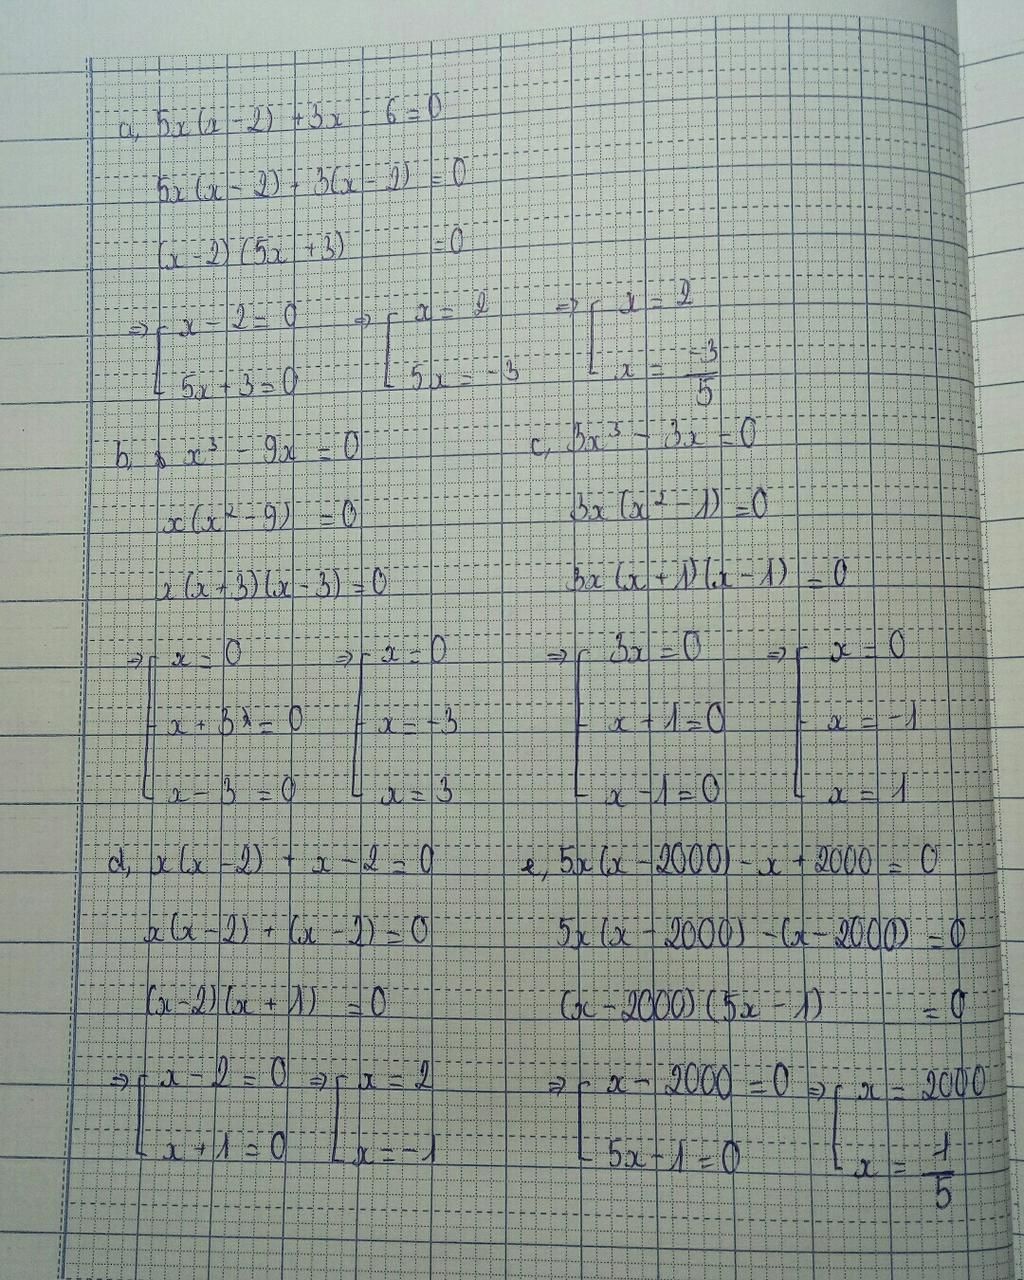 a, 5x(x - 2) + 3x - 6 = 0
5x(x - 2) + 3(x - 2) = 0
(x - 2)(5x + 3) = 0
⇒ [ x - 2 = 0 ⇒ [ x = 2 ⇒ [ x = 2
5x + 3 = 0 5x = -3 x = -3/5
b, x³ - 9x = 0
x(x² - 9) = 0
x(x + 3)(x - 3) = 0
⇒ [ x = 0 ⇒ [ x = 0
x + 3 = 0 x = -3
x - 3 = 0 x = 3
c, 3x³ - 3x = 0
3x(x² - 1) = 0
3x(x + 1)(x - 1) = 0
⇒ [ 3x = 0 ⇒ [ x = 0
x + 1 = 0 x = -1
x - 1 = 0 x = 1
d, x(x - 2) + x - 2 = 0
x(x - 2) + (x - 2) = 0
(x - 2)(x + 1) = 0
⇒ [ x - 2 = 0 ⇒ [ x = 2
x + 1 = 0 x = -1
e, 5x(x - 2000) - x + 2000 = 0
5x(x - 2000) - (x - 2000) = 0
(x - 2000)(5x - 1) = 0
⇒ [ x - 2000 = 0 ⇒ [ x = 2000
5x - 1 = 0 x = 1/5